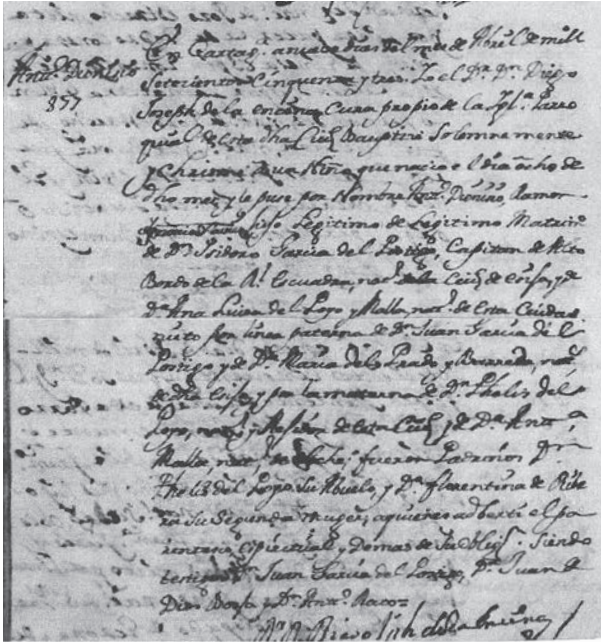 Antº. Dionisio
857
En Cartagª. a nuebe dias del mes de Abril de mill
Setecientos Cinquenta y tres. Yo el Dr. Dn. Diego
Joseph de la encina Cura propio de la Iglª. Parro
quial de esta dha Ciud Bauptizé Solemnemente
y Chrisme a un Niño que nacio el dia ocho de
dho mes y le puse por Nombre Antº. Dionisio Ramon
hijo Legitimo de Legitimo Matrim
de Dn. Isidoro Garcia del Postigo, Capitan de Alto
Bordo de la Rl. Escuadra, natl. de la Ciud de y de
Dª. Ana Luisa del Poyo y Malla, natl. de esta Ciudad
nieto por linea paterna de Dn. Juan Garcia del
Postigo y de Dª. Maria de Prado y natˢ.
de dha y por la materna de Dn. Phelis del
Poyo, natl. y de esta Ciud y de Dª. Antª.
Malla, natl. de fueron Padrinos Dn
Phelis del Poyo su Abuelo, y Dª. florentina de Ribe
ra su Segunda muger, a quienes adberti el pa
rentesco espiritual y demas de su obligⁿ. Siendo
testigos Dn. Juan Garcia del Postigo, Dn. Juan de
Dios y Dn. Antº.
Dr. Dn. Diego Jph de la Encina